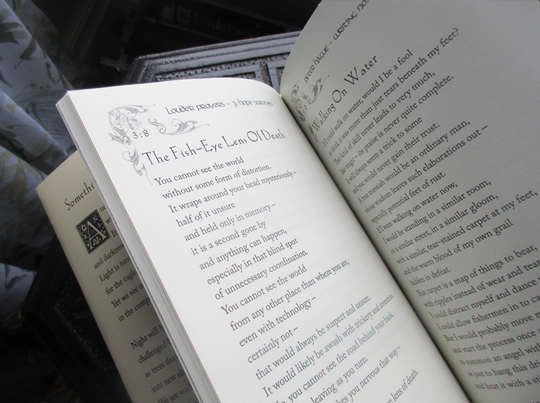 Somethi
A
and darkness
Light is
for the eagle
Yet we are
Night will b
challenged
as teen dreams
into new
Louder prayers – & hope survives
3:8
The Fish-Eye Lens Of Death
You cannot see the world
without some form of distortion.
It wraps around your head mysteriously –
half of it unsure
and held only in memory –
it is a second gone by
and anything can happen,
especially in that blind spot
of unnecessary coordination.
You cannot see the world
from any other place than where you are,
even with technology –
certainly not –
that would always be suspect and unsure.
It would likely be awash with trident and
you cannot see the road behind your back
leaving as you turn.
you nervous that way –
lens of death
Walking On Water
If I could walk on water, would I be a fool
more than just tears beneath my feet?
kind of skill never leads to very much,
its praise is never quite complete.
always seem a trick to some
you would never gain their trust.
messiah would be an ordinary man,
weakest leaves such elaborations out –
potentially feet of rust.
If I were walking on water now,
I would be standing in a similar room,
with a similar street, in a similar gloom,
with a similar, tear-stained carpet at my feet,
and the warm blood of my own grail
hidden in defeat.
This carpet is a map of things to bear,
with ripples instead of wear and tear
I could distract myself and dance
I could allow fishermen in to
But I would probably move
and start the process once
to summon an angel with
or just to hang this
and beat it with a